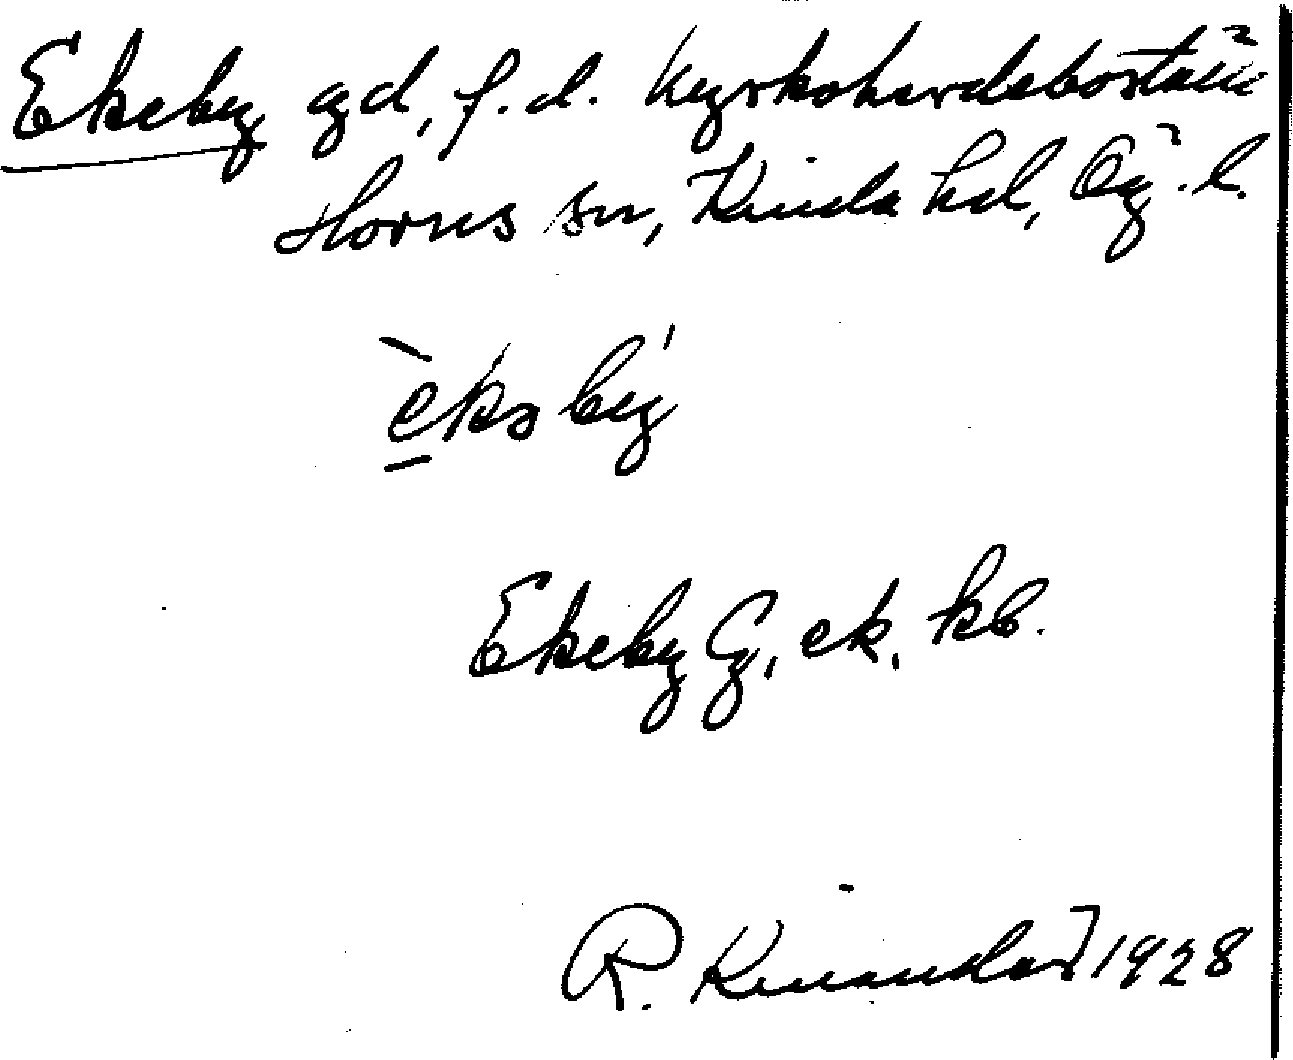 Ekeby gd, f.d. kyrkoherdeboställe
Horns sn, Kinda hd, Ög. l.
èkəbý
Ekeby G, ek. kb.
R. Kinander 1928